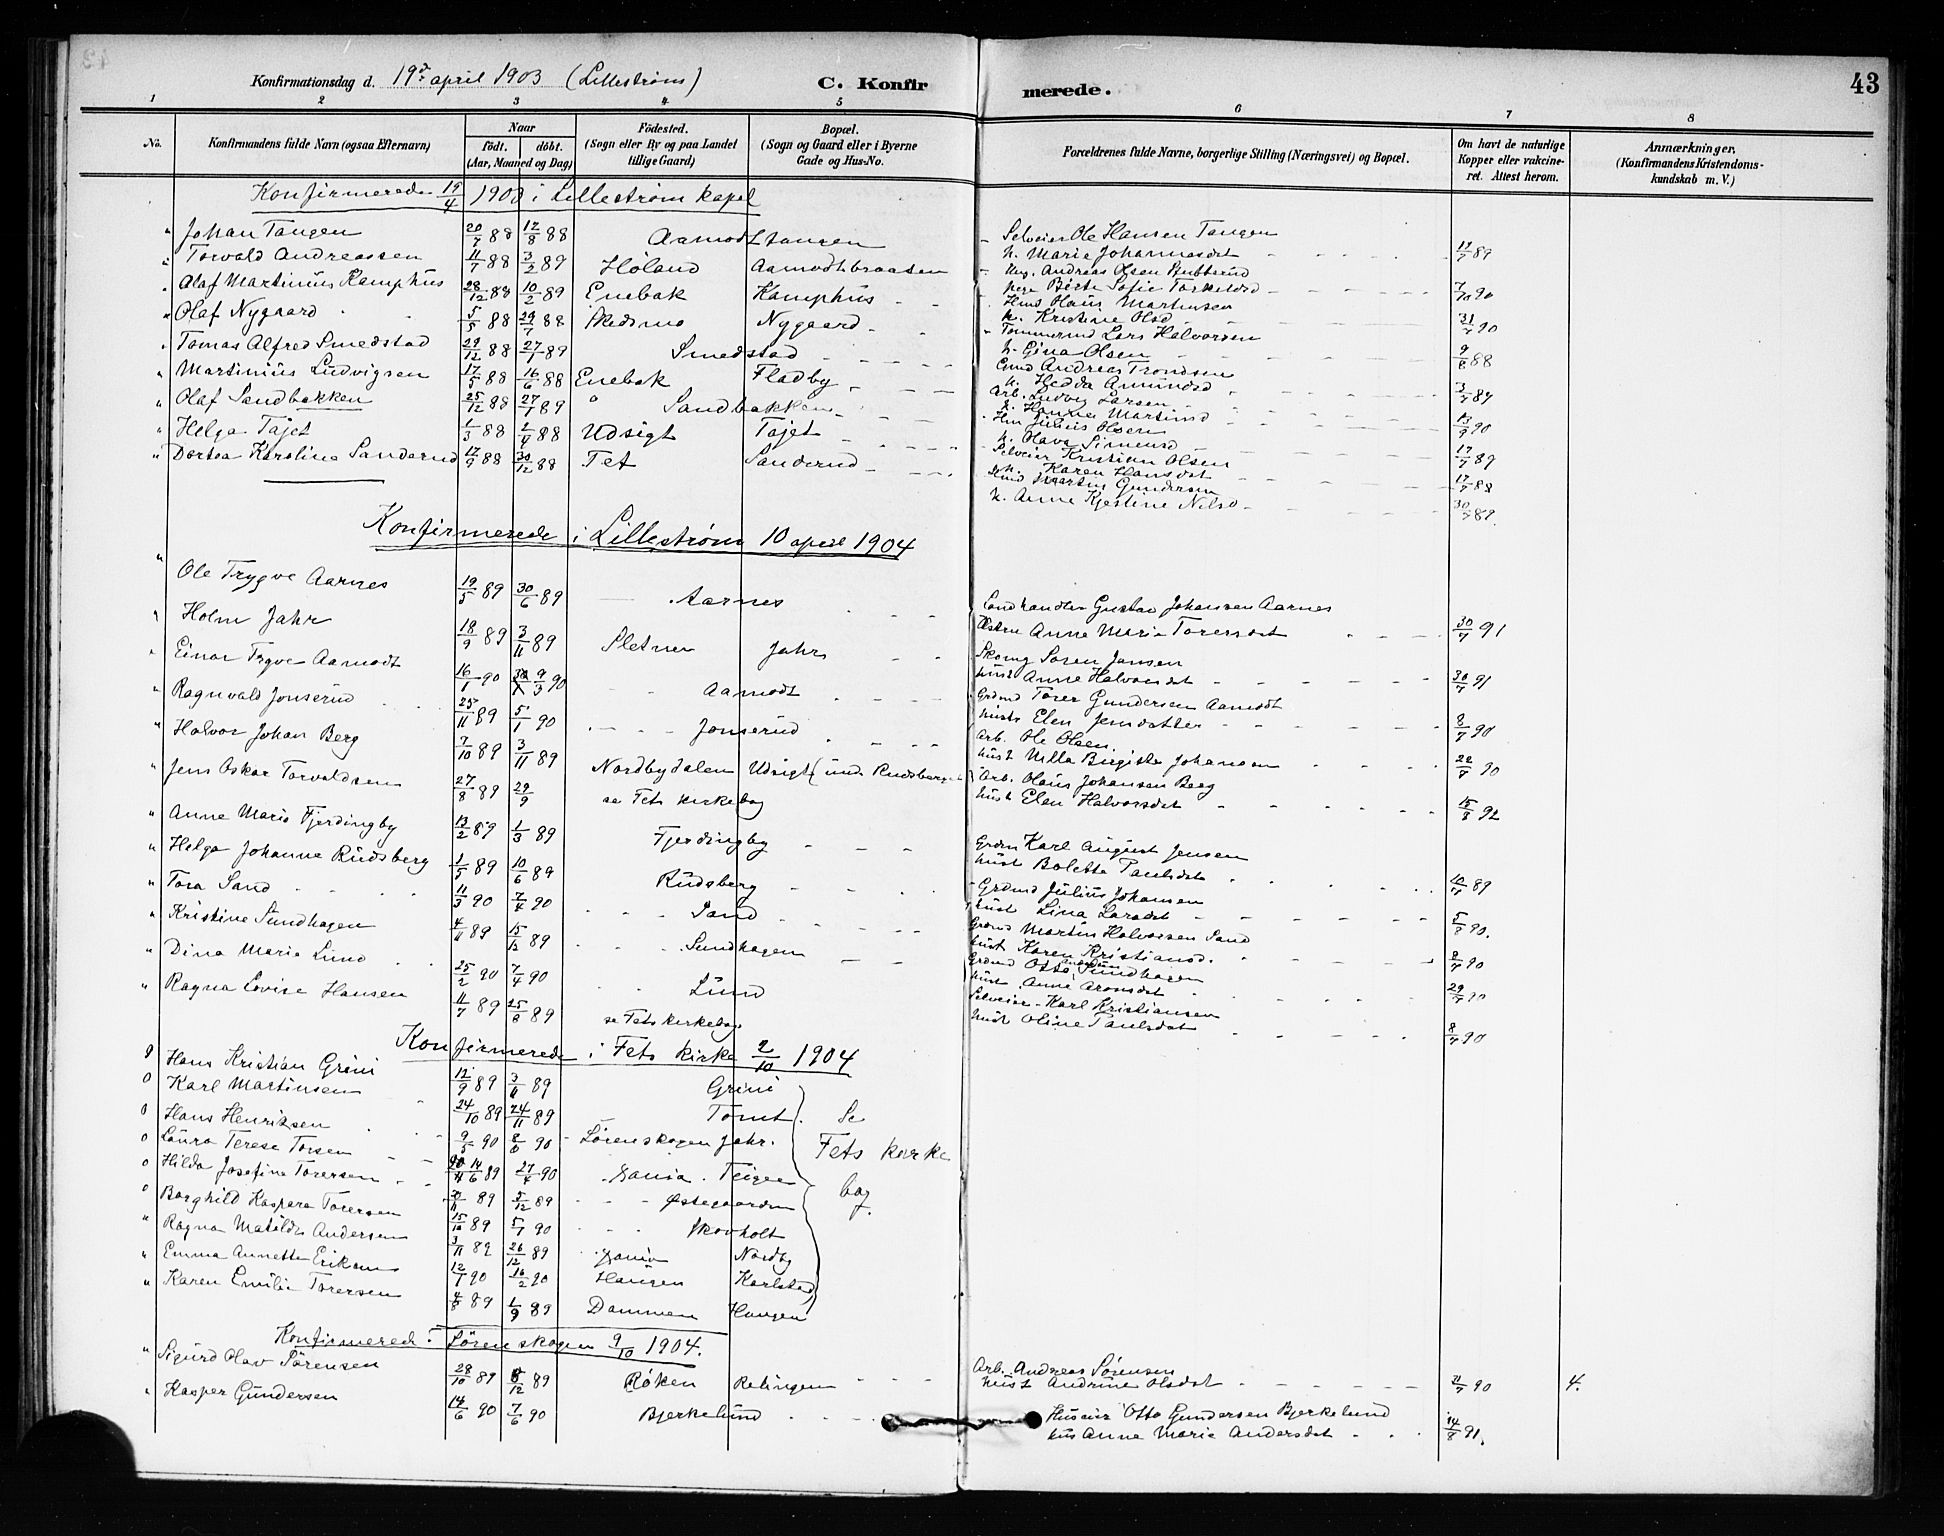 43
Konfirmationsdag d. 19de april 1903 (Lillestrøm) C. Konfirmerede.
1 2 3 4 5 6 7 8
No. Konfirmandens fulde Navn (ogsaa Efternavn) Naar födt. döbt. (Aar, Maaned og Dag) Födested. (Sogn eller By og paa Landet tillige Gaard) Bopæl. (Sogn og Gaard eller i Byerne Gade og Hus-No. Forældrenes fulde Navne, borgerlige Stilling (Næringsvei) og Bopæl. Om havt de naturlige Kopper eller vakcineret. Attest herom. Anmærkninger. (Konfirmandens Kristendomskundskab m. V.)
Konfirmerede 19/4 1903 i Lillestrøm kapel
" Johan Tangen 20/7 88 12/8 88 Aamodttangen Selveier Ole Hansen Tangen
h. Marie Johannesdat 89
" Torvald Andreassen 11/7 88 3/2 89 Høland Aamodtbraaten Ung. Andreas Olsen
pige Berte Sofie Torkildsd 7/10 90
" Olaf Martinius Kamphus 28/12 88 10/2 89 Enebak Kamphus Hmd Olaus Martinsen
h. Kristine Olsd 31/7 90
" Olaf Nygaard 5/5 88 29/7 88 Skedsmo Nygaard Tømmermd Lars Halvorsen
h. Gina Olsen 9/8 88
" Tomas Alfred Smedstad 29/12 88 27/1 89 Smedstad Gmd Andreas Trondsen
h. Hedda Amundsd 3/7 89
" Martinius Ludvigsen 17/5 88 16/6 88 Enebak Fladby Arb. Ludvig Larsen
h. Hanna Martinsd 13/9 90
" Olaf Sandbakken 25/12 88 27/1 89 " Sandbakken Hm Julius Olsen
h. Olava Simensd 17/7 89
" Helga Tajet 1/3 88 2/4 88 Udsigt Tajet Selveier Kristian Olsen
h. Karen Hansdat 17/7 88
" Dortea Karoline Sanderud 17/9 88 30/12 88 Fet Sanderud Hmd Martin Gundersen
h. Anne Kjestine Nilsd 30/7 89.
Konfirmerede i Lillestrøm 10 april 1904
" Ole Trygve Aarnes 19/5 89 30/6 89 Aarnes Landhandler Gustav Johansen Aarnes
Anne Marie Torersdat 30/7 91
" Holm Jahr 18/9 89 3/11 89 Sletner Jahr Skomg Søren Jansen
hust Anne Halvorsdat 30/7 91
" Einar Trygve Aamodt 16/1 90 9/3 90 Aamodt Grdmd Torer Gundersen Aamodt
hustr Elen Jensdatter 8/7 90
" Ragnvald Jonserud 25/11 89 5/1 90 Jonserud Arb. Ole Olsen.
hust Milla Birgitte Johansen 22/7 90
" Halvor Johan Berg 7/10 89 3/11 89 Nordbydalen Udsigt (und. Rudsberget) Arb. Olaus Johansen Berg
hust Elen Halvorsdat 15/8 92
" Jens Oskar Torvaldsen 27/8 89 29/9 se Fets kirkebog
" Anne Marie Fjerdingby 13/2 89 1/3 89 Fjerdingby Grdm Karl August Jensen
hust Bolette Paulsdat 10/11 89
" Helga Johanne Rudsberg 1/5 89 10/6 89 Rudsberg Grdmd Julius Johansen
hust Lina Larsdat 5/7 90.
" Tora Sand 11/3 90 7/4 90 Sand Grdmd Martin Halvorsen Sand
hust Karen Kristiansd. 8/7 90
" Kristine Sundhagen 4/11 89 15/12 89 Sundhagen Grdmd Otto Sundhagen
hust Anne Aronsdat 29/7 90
" Dina Marie Lund 25/2 90 7/4 90 Lund Selveier Karl Kristiansen
hust Oline Paulsdat 8/7 90
" Ragna Lovise Hansen 11/7 89 25/8 89 se Fets kirkebog
Konfirmerede i Fets kirke 2/10 1904
0 Hans Kristian Grini 12/9 89 3/11 89 Grini
0 Karl Martinsen 24/10 89 24/11 89 Tomt. Se
0 Hans Henriksen 9/5 90 8/6 90 Lørenskogen Jahr. Fets kirke
0 Laura Terese Torsen 14/6 89 27/4 90 Xania. Teigen bog.
0 Hilda Josefine Torersen 89 5/12 89 Østegaarden
0 Borghild Kaspara Torersen 15/10 89 5/1 90 Skovholt
" Ragna Matilde Andersen 3/11 89 26/12 89 Xania Nordby
" Emma Annette Eriksen 12/1 90 16/2 90 Haugen Karlstad
" Karen Emilie Torersen 4/8 89 1/9 89 Dammen Haugen
Konfirmerede i Lörenskogen 9/10 1904.
" Sigurd Olav Sørensen 28/10 89 8/12 89 Røken Relingen Arb. Andreas Sørensen
hust Andrine Olsdat 90 4.
" Kasper Gundersen 14/6 90 7/6 90 Bjerkelund Huseier Otto Gundersen Bjerkelund
hus Anne Marie Andersdat 14/8 91.